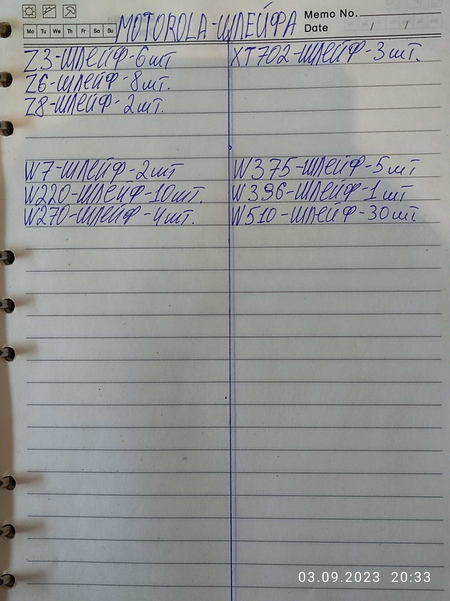 MOTOROLA-ШЛЕЙФА
Memo No.
Mo Tu We Th Fr Sa Su
Date / /
Z3-ШЛЕЙФ-6шт
XT702-ШЛЕЙФ-3шт.
Z6-ШЛЕЙФ-8шт.
Z8-ШЛЕЙФ-2шт.
W7-ШЛЕЙФ-2шт
W375-ШЛЕЙФ-5шт
W220-ШЛЕЙФ-10шт.
W396-ШЛЕЙФ-1шт
W270-ШЛЕЙФ-4шт.
W510-ШЛЕЙФ-30шт
03.09.2023 20:33